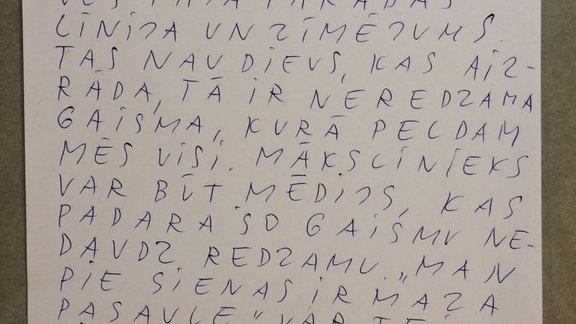 LĪNIJA UN ZĪMĒJUMS.
TAS NAV DIEVS, KAS AIZ-
RĀDA, TĀ IR NEREDZAMA
GAISMA, KURĀ PELDAM
MĒS VISI. MĀKSLINIEKS
VAR BŪT MĒDIJS, KAS
PADARA ŠO GAISMU NE-
DAUDZ REDZAMU. „MAN
PIE SIENAS IR MAZA
PASAULE" VAR